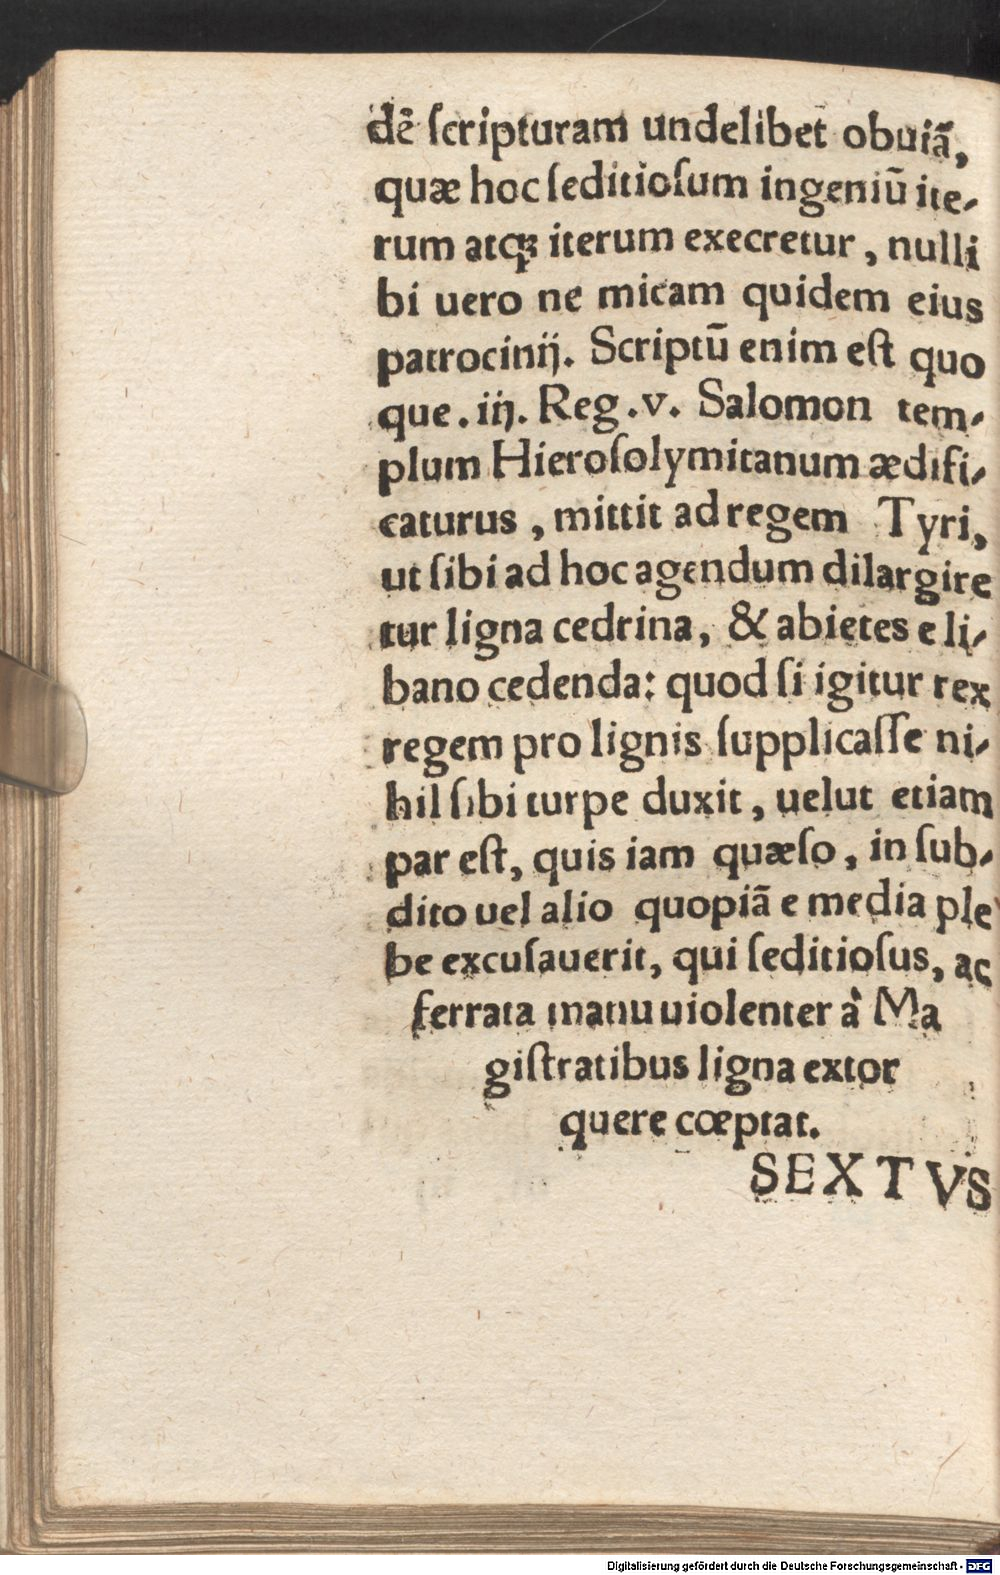 dẽ ſcripturam undelibet obuiã,
quæ hoc ſeditioſum ingeniũ ite-
rum atqꝫ iterum execretur, nulli
bi uero ne micam quidem eius
patrocinij. Scriptũ enim eſt quo
que. iij. Reg. v. Salomon tem-
plum Hieroſolymitanum ædifi-
caturus, mittit ad regem Tyri,
ut ſibi ad hoc agendum dilargire
tur ligna cedrina, & abietes e li-
bano cedenda: quod ſi igitur rex
regem pro lignis ſupplicaſſe ni-
hil ſibi turpe duxit, uelut etiam
par eſt, quis iam quæſo, in ſub-
dito uel alio quopiã e media ple
be excuſauerit, qui ſeditioſus, ac
ferrata manu uiolenter à Ma
giſtratibus ligna extor
quere cœptat.
SEXTVS
Digitalisierung gefördert durch die Deutsche Forschungsgemeinschaft - DFG